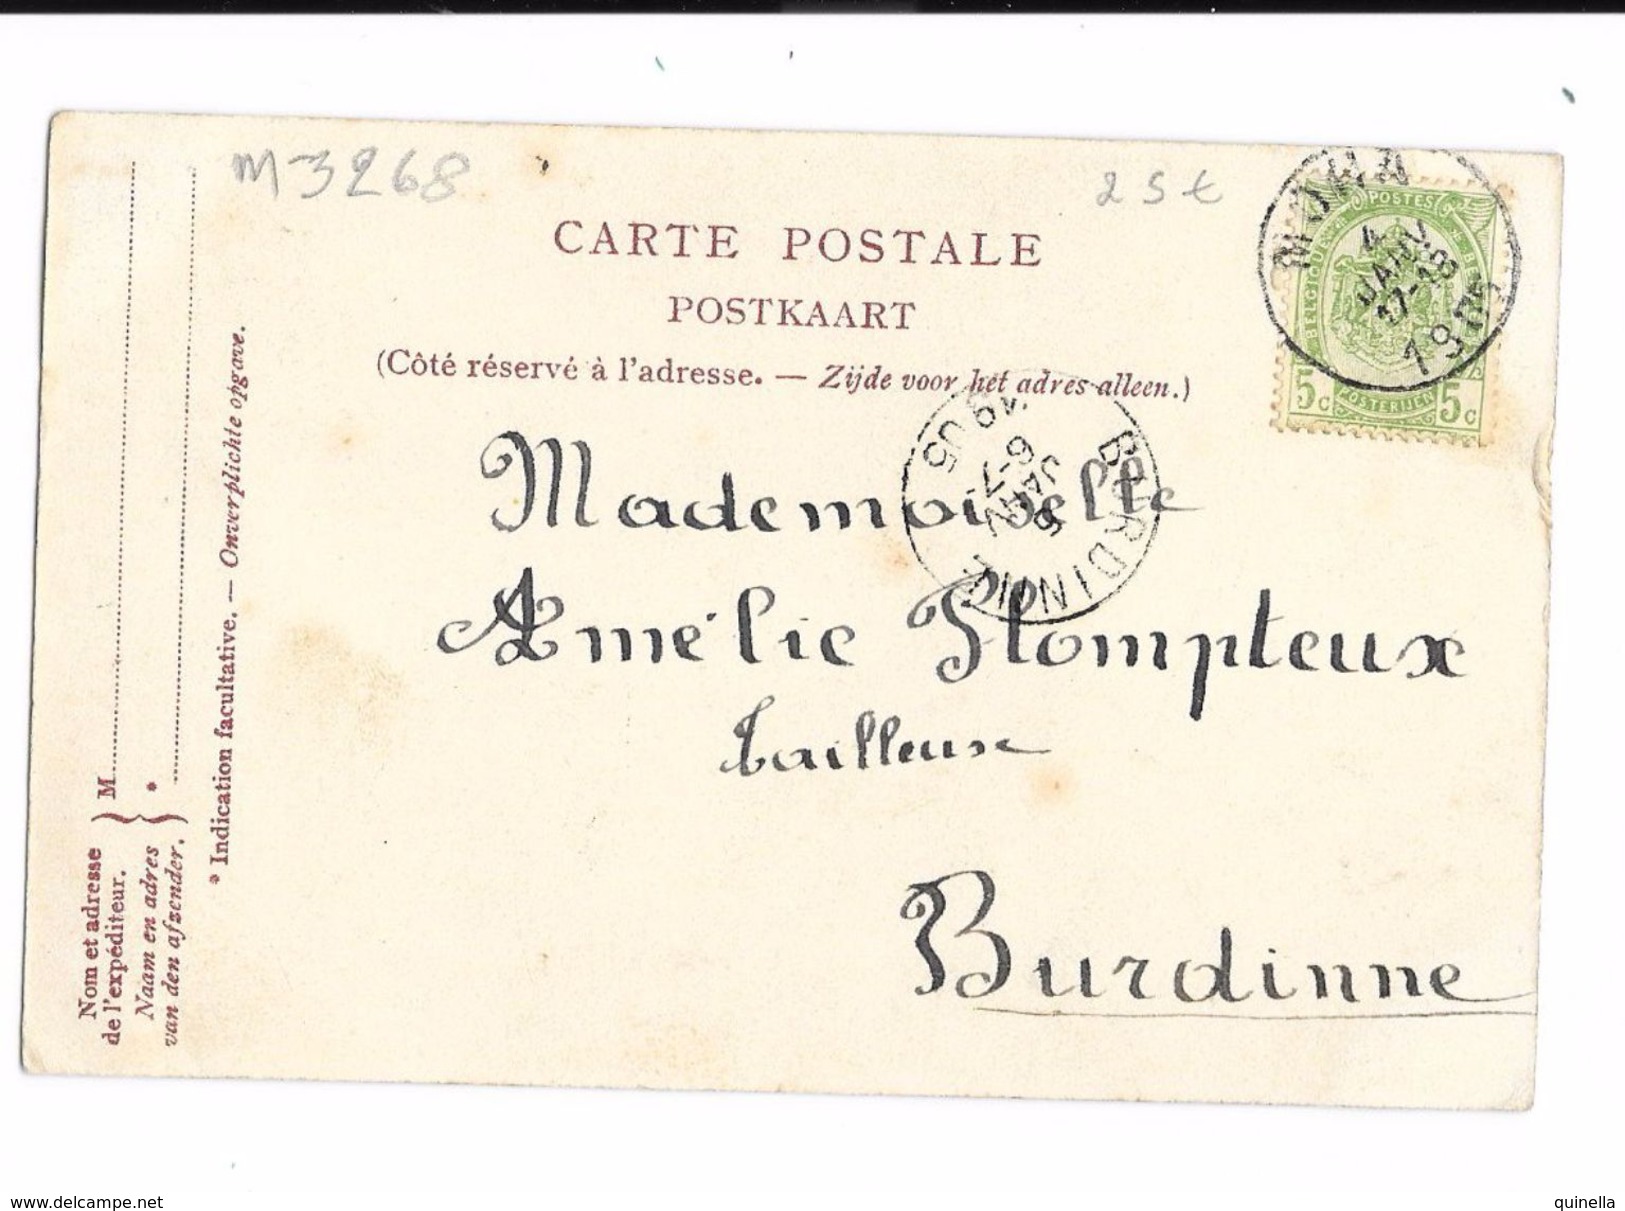 M3268
25€
CARTE POSTALE
POSTKAART
(Côté réservé à l'adresse. — Zijde voor het adres alleen.)
MOHA
4
JANV
17-18
1905
POSTES
BELGIQUE
BELGIË
5c POSTERIJEN 5c
BURDINNE
5
JANV
6-7
1905
Mademoiselle
Amélie Flompteux
Tailleuse
Burdinne
Nom et adresse
de l'expéditeur.
Naam en adres
van den afzender.
M
*
* Indication facultative. — Onverplichte opgave.
www.delcampe.net
quinella